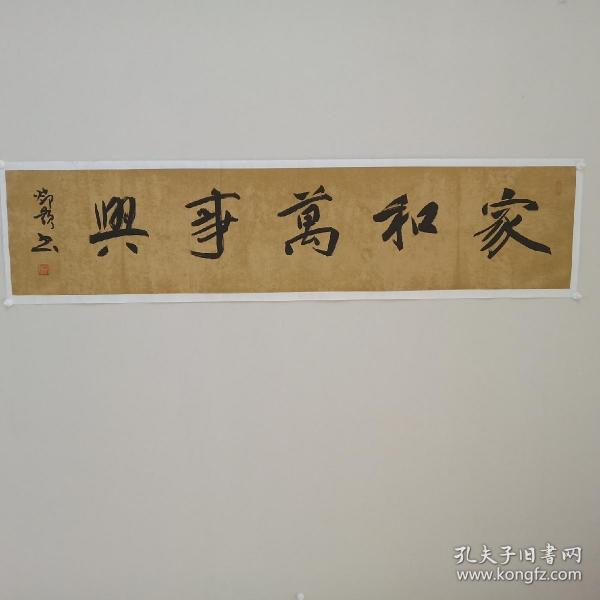 家和萬事興
书
孔夫子旧书网
www.kongfz.com